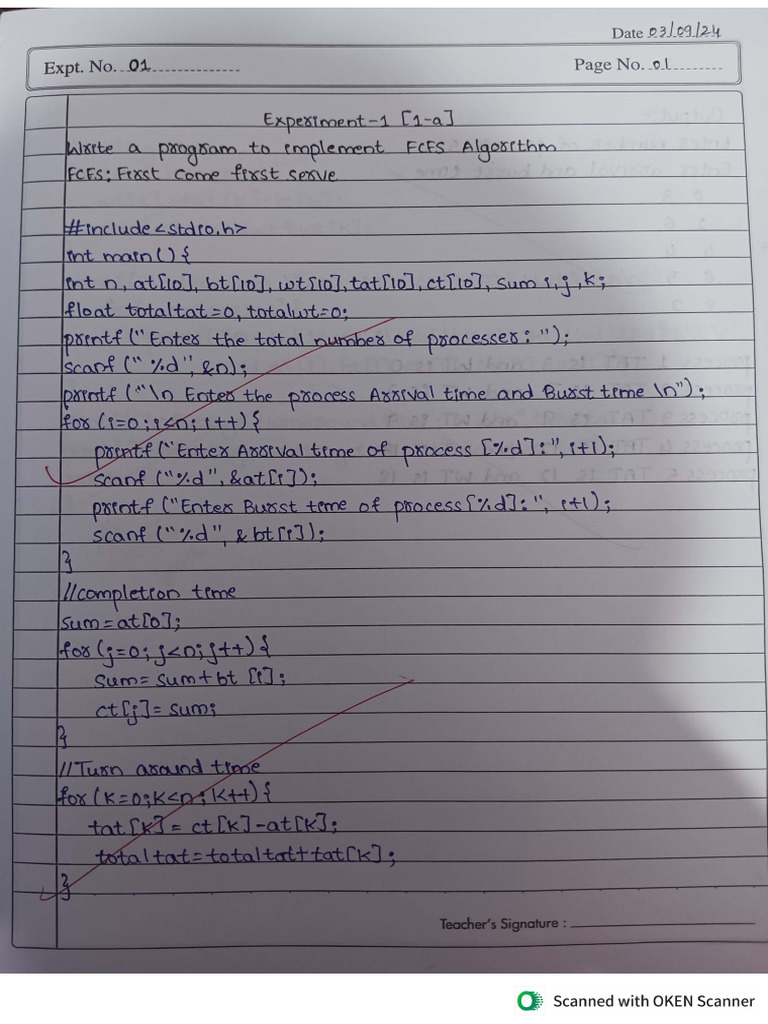 Date 03/09/24
Expt. No. 01
Page No. 01
Experiment-1 [1-a]
Write a program to implement FCFS Algorithm
FCFS: First come first serve
#include<stdio.h>
int main() {
int n, at[10], bt[10], wt[10], tat[10], ct[10], sum i, j, k;
float totaltat=0, totalwt=0;
printf ("Enter the total number of processer: ");
scanf (" %d", &n);
printf ("\n Enter the process Arrival time and Burst time \n");
for (i=0; i<n; i++) {
printf ("Enter Arrival time of process [%d]:", i+1);
scanf ("%d", &at[i]);
printf ("Enter Burst time of process[%d]:", i+1);
scanf ("%d", & bt[i]);
}
//completion time
sum=at[0];
for (j=0; j<n; j++) {
sum= sum+bt [i];
ct[j]= sum;
}
//Turn around time
for (k=0; k<n; k++) {
tat [k] = ct[k]-at[k];
totaltat=totaltat+tat[k];
}
Teacher's Signature :
Scanned with OKEN Scanner